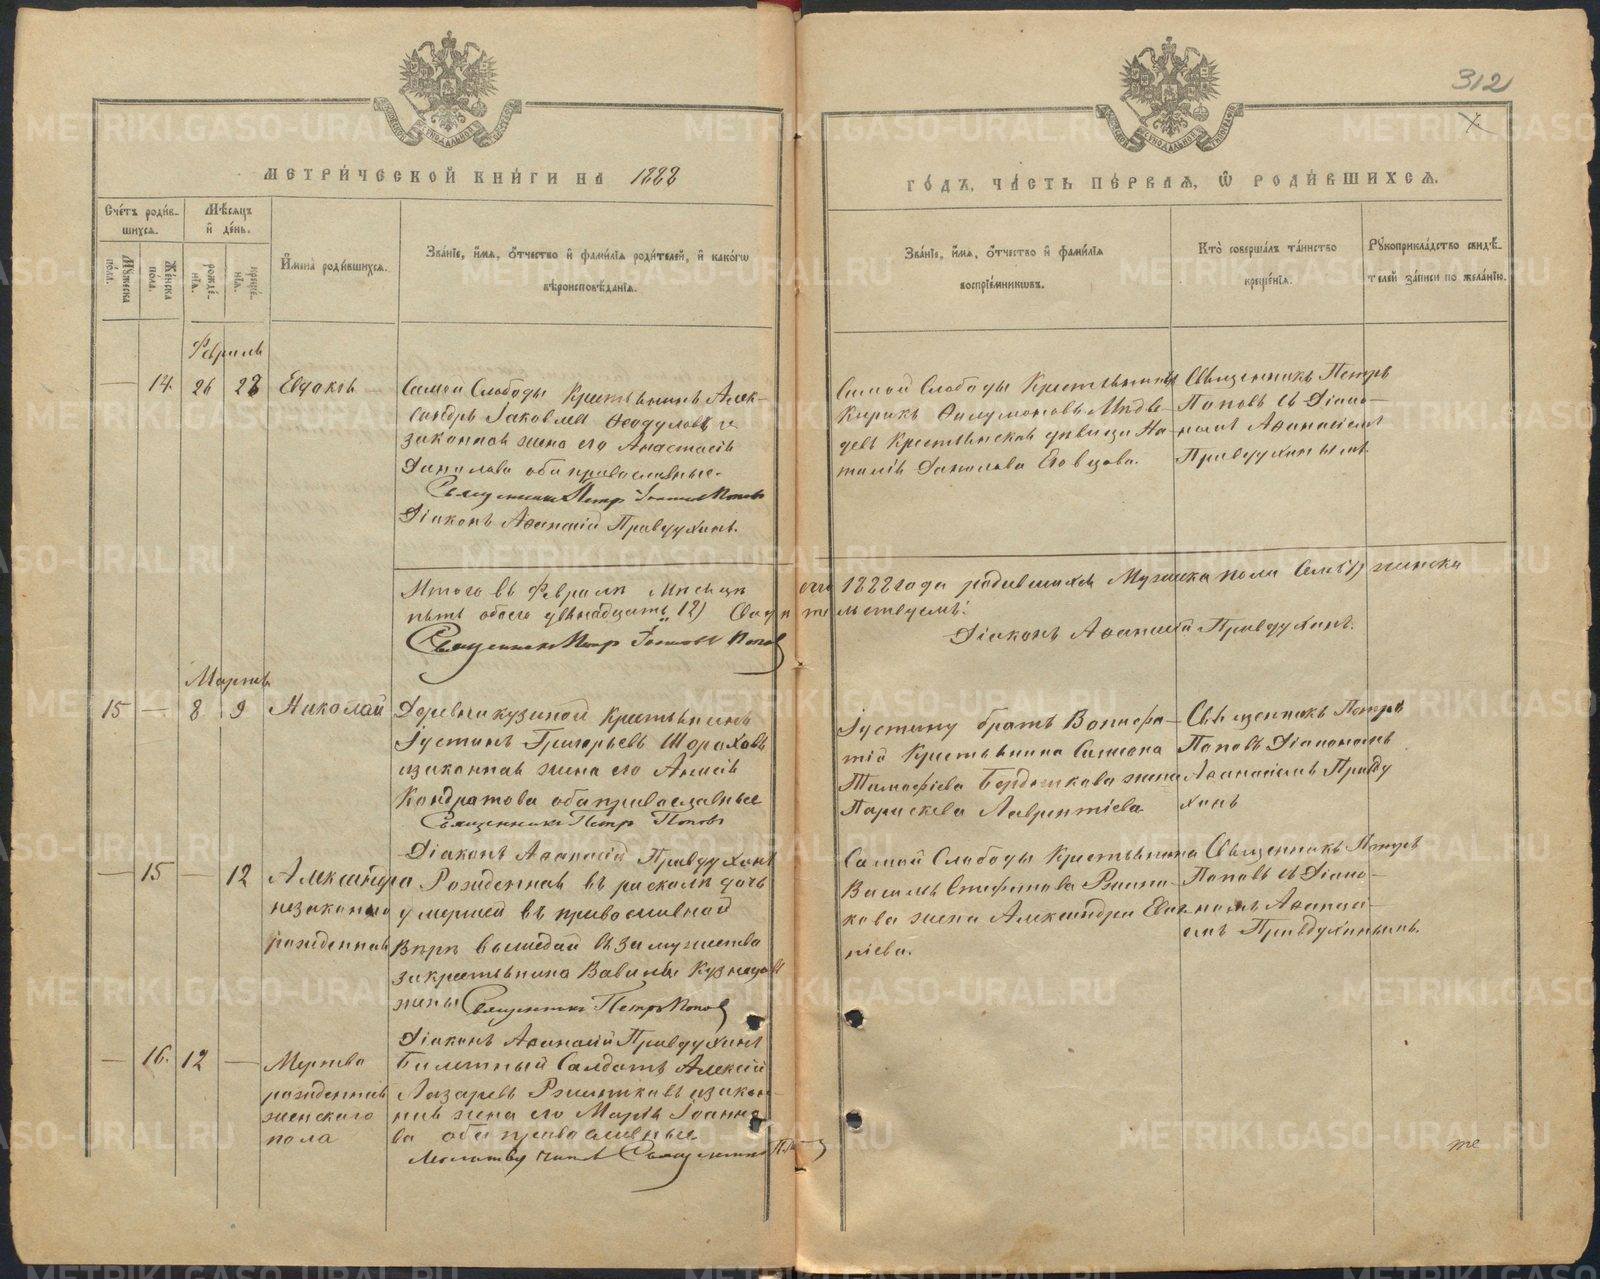 312
МЕТРИ́ЧЕСКОЙ КНИ́ГИ НА 1888
ГО́ДЪ, ЧА́СТЬ ПЕ́РВАЯ, Ѽ РОДИ́ВШИХСЯ.
Сче́тъ роди́в-
шихся.
Мѣ́сяцъ
и҆ де́нь.
Му́жеска по́ла.
Же́нска по́ла.
рожде́-нїя.
креще́-нїя.
И҆мена̀ роди́вшихся.
Зва́нїе, и҆́мя, ѻ҆́тчество и҆ фами́лїя роди́телей, и҆ како́гѡ
вѣроисповѣ́данїя.
Зва́нїе, и҆́мя, ѻ҆́тчество и҆ фами́лїя
воспрїе́мникѡвъ.
Кто̀ соверша́лъ та́инство
креще́нїя.
Рꙋкоприкла́дство свидѣ́-
телей за́писи по жела́нїю.
Февраль
14. 26 28 Евдокія
Самой Слободы Крестьянинъ Алек-
сандръ Іаковлевъ Ѳеодуловъ и
законная жена его Анастасія
Данилова оба православные.
Священникъ Петръ Іоанновъ Поповъ
Діаконъ Аѳанасій Правдухинъ.
Самой Слободы Крестьянинъ
Кирикъ Филумоновъ Медвѣ-
девъ Крестьянская дѣвица На-
талія Данилова
Священникъ Петръ
Поповъ съ Діако-
номъ Аѳанасіемъ
Правдухинымъ.
Итого въ Февралѣ Мѣсяцѣ сего 1888 года родившихся Мужеска пола Семь 7) женска
пять обоего двѣнадцать 12) Свидѣтельствуемъ:
Священникъ Петръ Іоанновъ Поповъ
Діаконъ Аѳанасій Правдухинъ.
Мартъ
15 — 8 9 Николай
Деревни Кузиной Крестьянинъ
Іустинъ Григорьевъ Шороховъ
и законная жена его Анисія
Кондратова оба православные
Священникъ Петръ Поповъ
Діаконъ Аѳанасій Правдухинъ
Іустину братъ Вонифа-
тій Крестьянина Симеона
Тимофіева жена
Параскева Лаврентіева
Священникъ Петръ
Поповъ Діакономъ
Аѳанасіемъ Правду
хинъ
— 15 — 12 Александра
незаконно
рожденная
Рожденная въ расколѣ дочь
умершей въ православной
Вѣрѣ вышедшей въ замужество
за крестьянина Вавилы Кузнецова
жены Священникъ Петръ Поповъ
Діаконъ Аѳанасій Правдухинъ
Самой Слободы Крестьянина
Василія Стефанова
кова жена Александра
ніева.
Священникъ Петръ
Поповъ съ Діако-
номъ Аѳанасі-
емъ Правдухинымъ.
— 16. 12 — Мертво
рожденная
женского
пола
Билетный Солдатъ Алексій
Лазаревъ и закон-
ная жена его Марія Іоанно-
ва оба православные
Молитву читалъ Священникъ